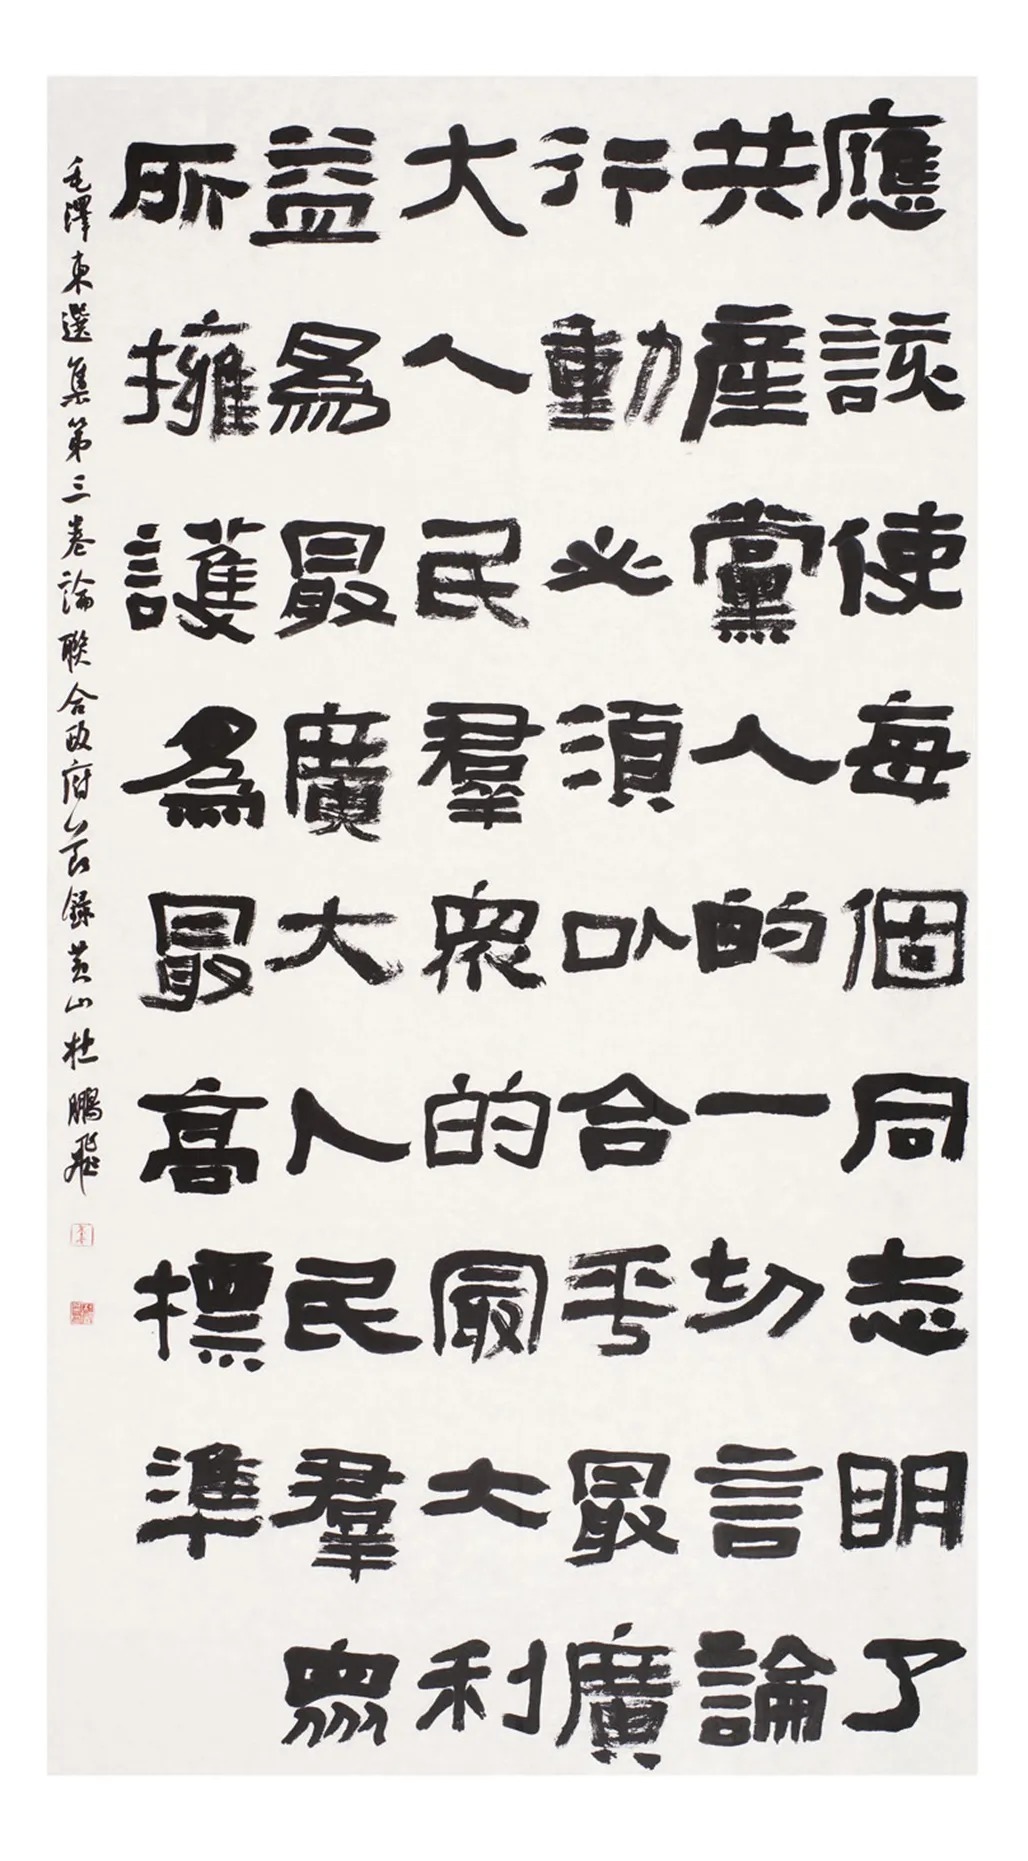 應該使每個同志明了
共產黨人的一切言論
行動必須以合乎最廣
大人民羣眾的最大利
益為最廣大人民羣眾
所擁護為最高標準
毛澤東選集第三卷論聯合政府節錄黃山杜鵬飛